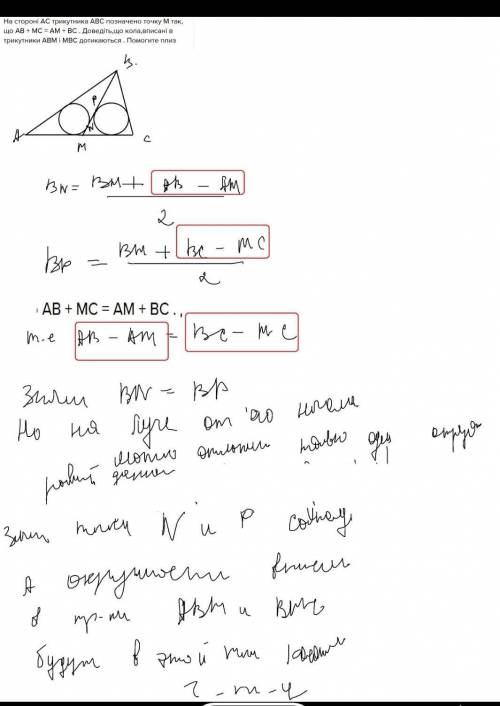 На стороні АС трикутника АВС позначено точку М так,
що АВ + МС = АМ + ВС . Доведіть,що кола,вписані в
трикутники АВМ і МВС дотикаються . Помогите плиз
B.
P
N
A
M
C
BN = BM + AB - AM
2
BP = BM + BC - MC
2
АВ + МС = АМ + ВС . ,
т.е AB - AM = BC - MC
Значит BN = BP
Но на луче от его начала
можно отложить только один отрезок
равный данному
Значит точки N и P совпад
А окружности впис
в тр-ки ABM и BMC
будут в этой точке касат
Ч-т-д